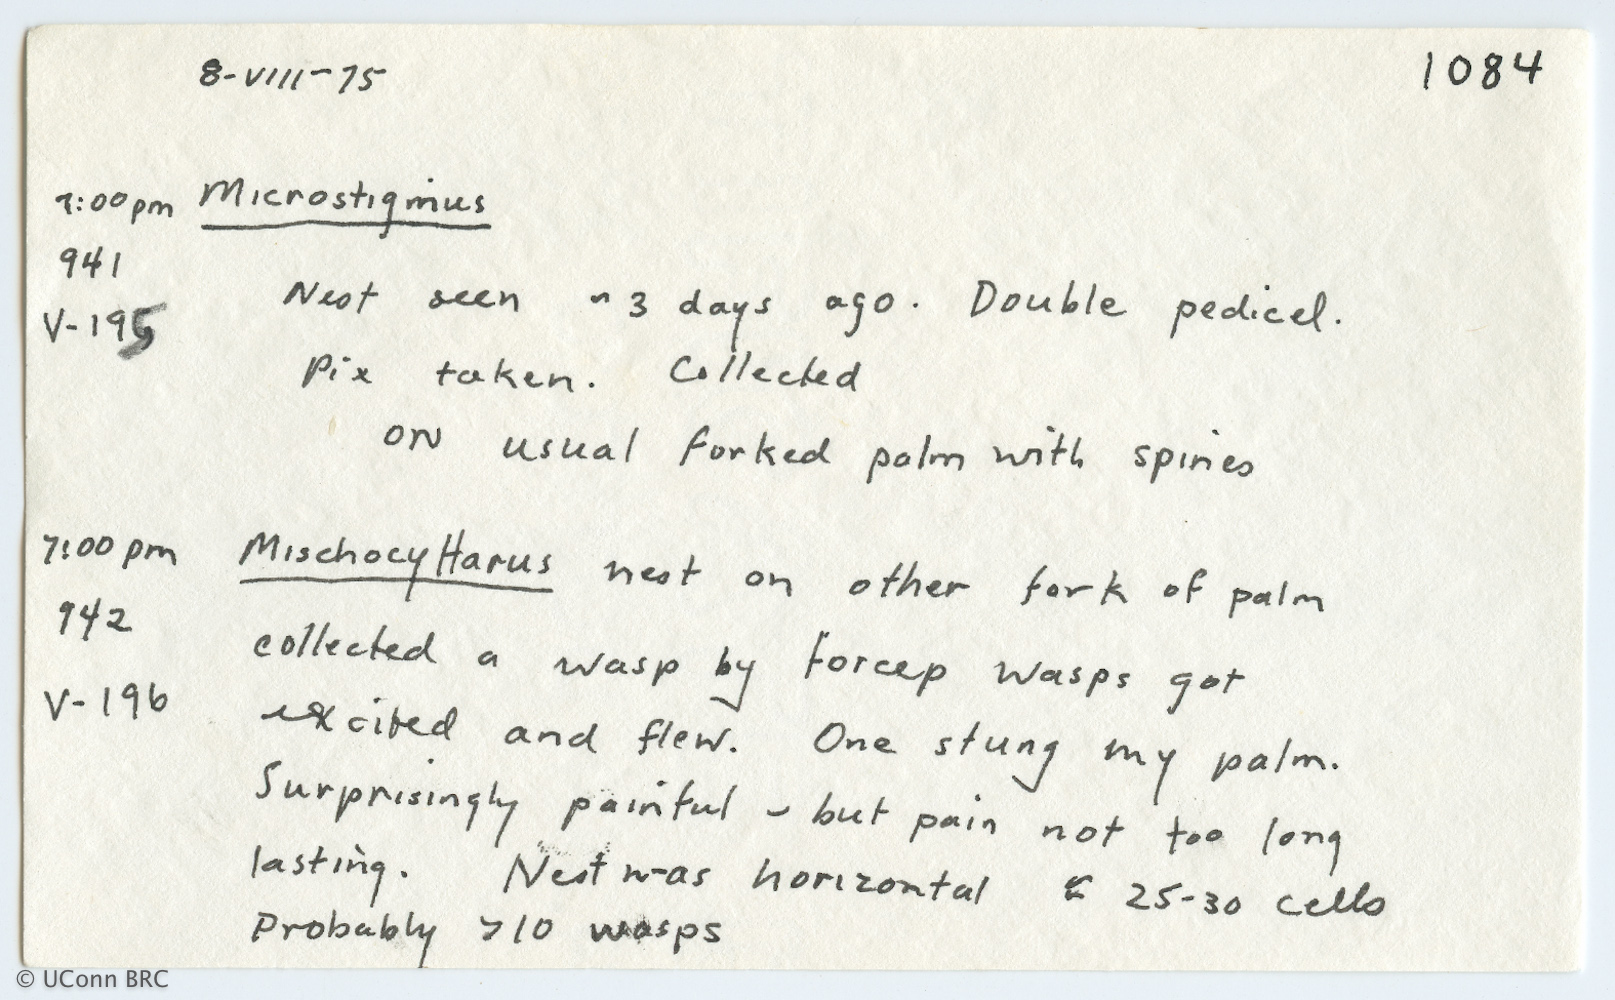 8-VIII-75
1084
7:00pm Microstigmus
941
V-195
Nest seen ~3 days ago. Double pedicel.
Pix taken. Collected
ON usual forked palm with spines
7:00 pm Mischocyttarus nest on other fork of palm
942
collected a wasp by forcep wasps got
V-196
excited and flew. One stung my palm.
Surprisingly painful - but pain not too long
lasting. Nest was horizontal 25-30 cells
Probably >10 wasps
© UConn BRC